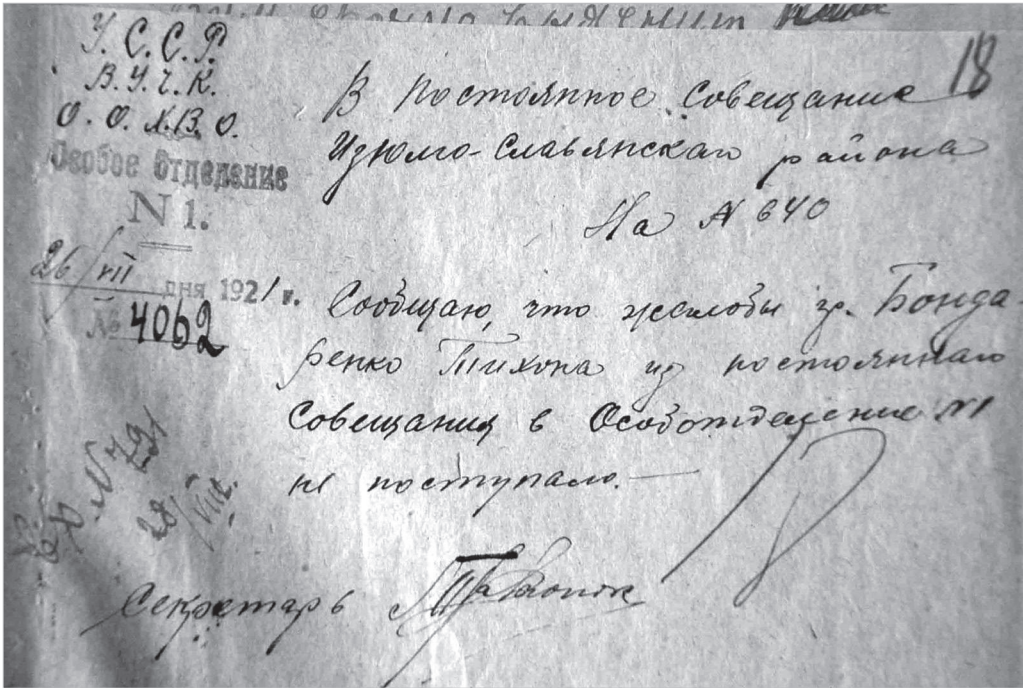 18
У. С. С. Р.
В. У. Ч. К.
О. О. Х. В. О.
Особое Отделение
N 1.
26/VIII дня 1921 г.
№ 4062
В постоянное совещание
Изюмо-Славянскаго района
На № 640
Сообщаю, что жалобы гр. Бонда-
ренко Тихона из постояннаго
совещания в Особотделение №1
не поступало. —
Вх. N 791
28/VIII.
Секретарь